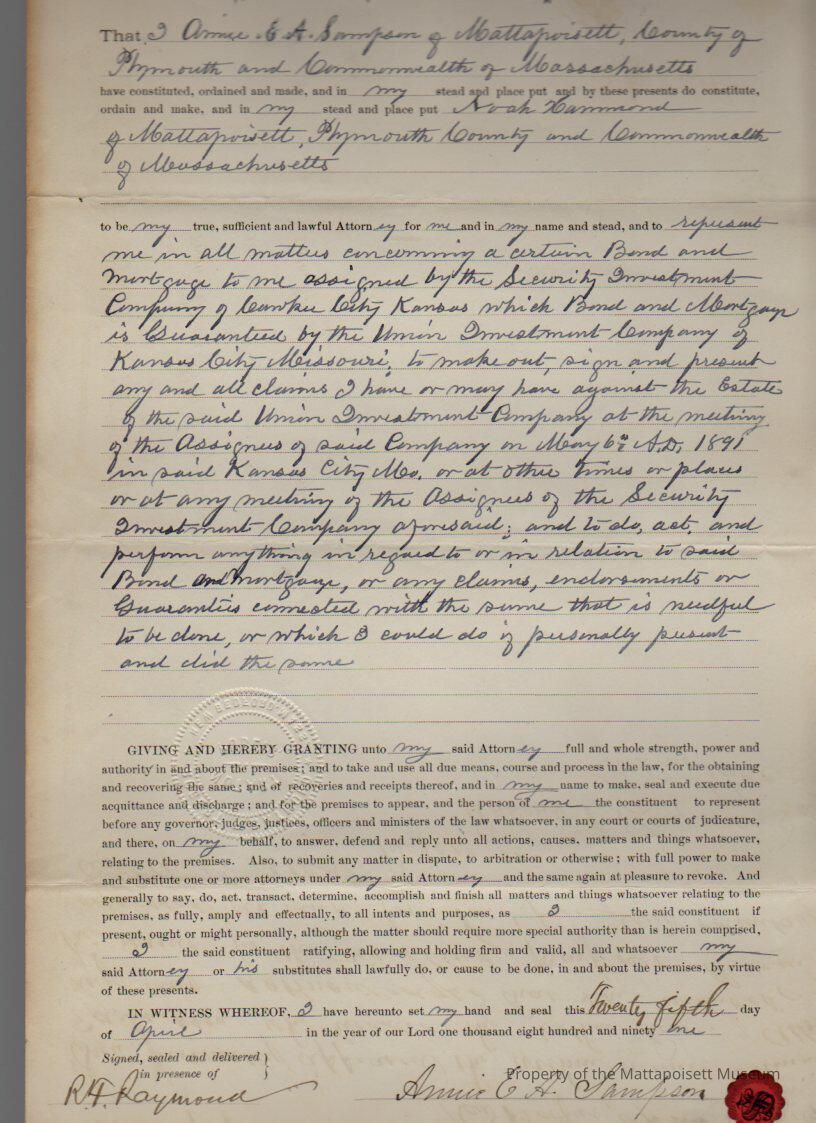 That I Annie E. A. Sampson of Mattapoisett, County of
Plymouth and Commonwealth of Massachusetts
have constituted, ordained and made, and in my stead and place put and by these presents do constitute,
ordain and make, and in my stead and place put Noah Hammond
of Mattapoisett, Plymouth County and Commonwealth
of Massachusetts
to be my true, sufficient and lawful Attorney for me and in my name and stead, and to represent
me in all matters concerning a certain Bond and
Mortgage to me assigned by the Security Investment
Company of Cawker City Kansas which Bond and Mortgage
is Guarantied by the Union Investment Company of
Kansas City Missouri, to make out, sign and present
any and all claims I have or may have against the Estate
of the said Union Investment Company at the meeting
of the Assignees of said Company on May 6th A.D. 1891
in said Kansas City Mo. or at other times or places
or at any meeting of the Assignees of the Security
Investment Company aforesaid; and to do, act, and
perform anything in regard to or in relation to said
Bond and Mortgage, or any claims, endorsements or
Guaranties connected with the same that is needful
to be done, or which I could do if personally present
and did the same
GIVING AND HEREBY GRANTING unto my said Attorney full and whole strength, power and
authority in and about the premises; and to take and use all due means, course and process in the law, for the obtaining
and recovering the same; and of recoveries and receipts thereof, and in my name to make, seal and execute due
acquittance and discharge; and for the premises to appear, and the person of me the constituent to represent
before any governor, judges, justices, officers and ministers of the law whatsoever, in any court or courts of judicature,
and there, on my behalf, to answer, defend and reply unto all actions, causes, matters and things whatsoever,
relating to the premises. Also, to submit any matter in dispute, to arbitration or otherwise; with full power to make
and substitute one or more attorneys under my said Attorney and the same again at pleasure to revoke. And
generally to say, do, act, transact, determine, accomplish and finish all matters and things whatsoever relating to the
premises, as fully, amply and effectually, to all intents and purposes, as I the said constituent if
present, ought or might personally, although the matter should require more special authority than is herein comprised,
I the said constituent ratifying, allowing and holding firm and valid, all and whatsoever my
said Attorney or his substitutes shall lawfully do, or cause to be done, in and about the premises, by virtue
of these presents.
IN WITNESS WHEREOF, I have hereunto set my hand and seal this Twenty fifth day
of April in the year of our Lord one thousand eight hundred and ninety one
Signed, sealed and delivered }
in presence of }
Property of the Mattapoisett Museum
R. H. Raymond Annie E A. Sampson